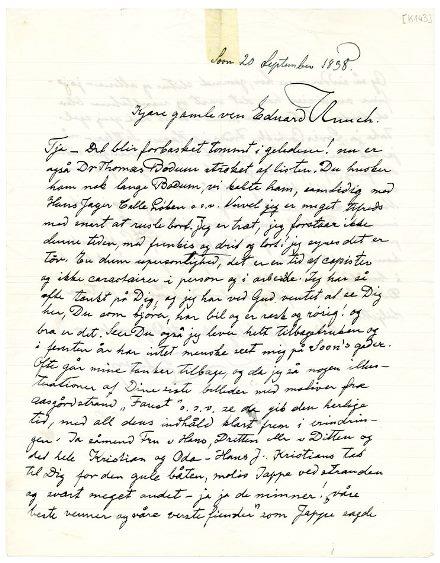 [K1143]
Soon 20 September 1938.
Kjære gamle ven Edvard Munch.
Tje – Det blir forbasket tommt i geledene! nu er
også Dr Thomas Bodum strøket af listen. Du husker
ham nok lange Bodum, vi kalte ham, samtidig med
Hans Jæger Calle Løken o.s.v. Nuvel jeg er meget tilfreds
med snart at rusle bort. Jeg er træt, jeg forstaar ikke
denne tiden, med funkis og drid og lort: jeg synes det er
tøv. En dum upersonlighed, det er en tid af copister
og ikke caracterer i person og i arbeide. Jeg har så
ofte tænkt på Dig, og jeg har ved Gud ventet at se Dig
her, Du som kjører, har bil og er rask og rørig! og
bra er det. Ser Du også jeg lever helt tilbagetrukken og
i fjorten år har intet menske seet mig på Soon's gader.
Ofte går mine tanker tilbage, og da jeg så nogen illus-
trationer af Dine siste billeder med motiver fra
Aasgårdstrand "Faust" o.s.v. se da gik den herlige
tid, med all dens indhåld klart frem i erindrin-
gen. Ja Fru Hans, Ditten eller Ditten og
det hele Kristian og Oda – Hans J. – Kristians tak
til Dig for den gule båten, Jappe ved stranden
og svært meget andet – ja ja de minner! "våre
beste venner og våre verste fiender" som Jappe sagde